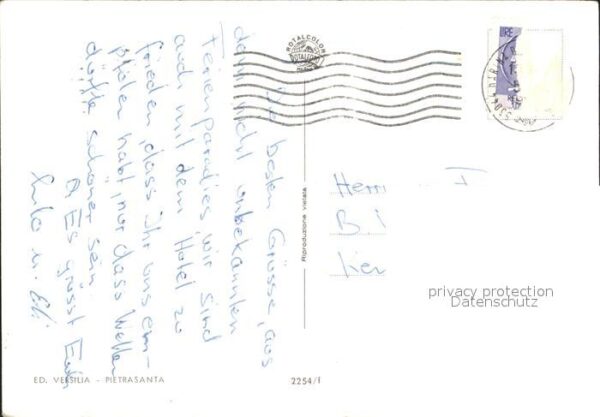 Die besten Grüsse, aus
dem nicht unbekannten
Ferienparadies, wir sind
auch mit dem Hotel zu
frieden, dass ihr uns em-
pfolen habt, nur dass Wetter
dürfte schöner sein
Es grüsst Euch
u.
ROTALCOLOR
ROTALFOTO
Riproduzione Vietata
Herrn
privacy protection
Datenschutz
ED. VERSILIA - PIETRASANTA
2254/f